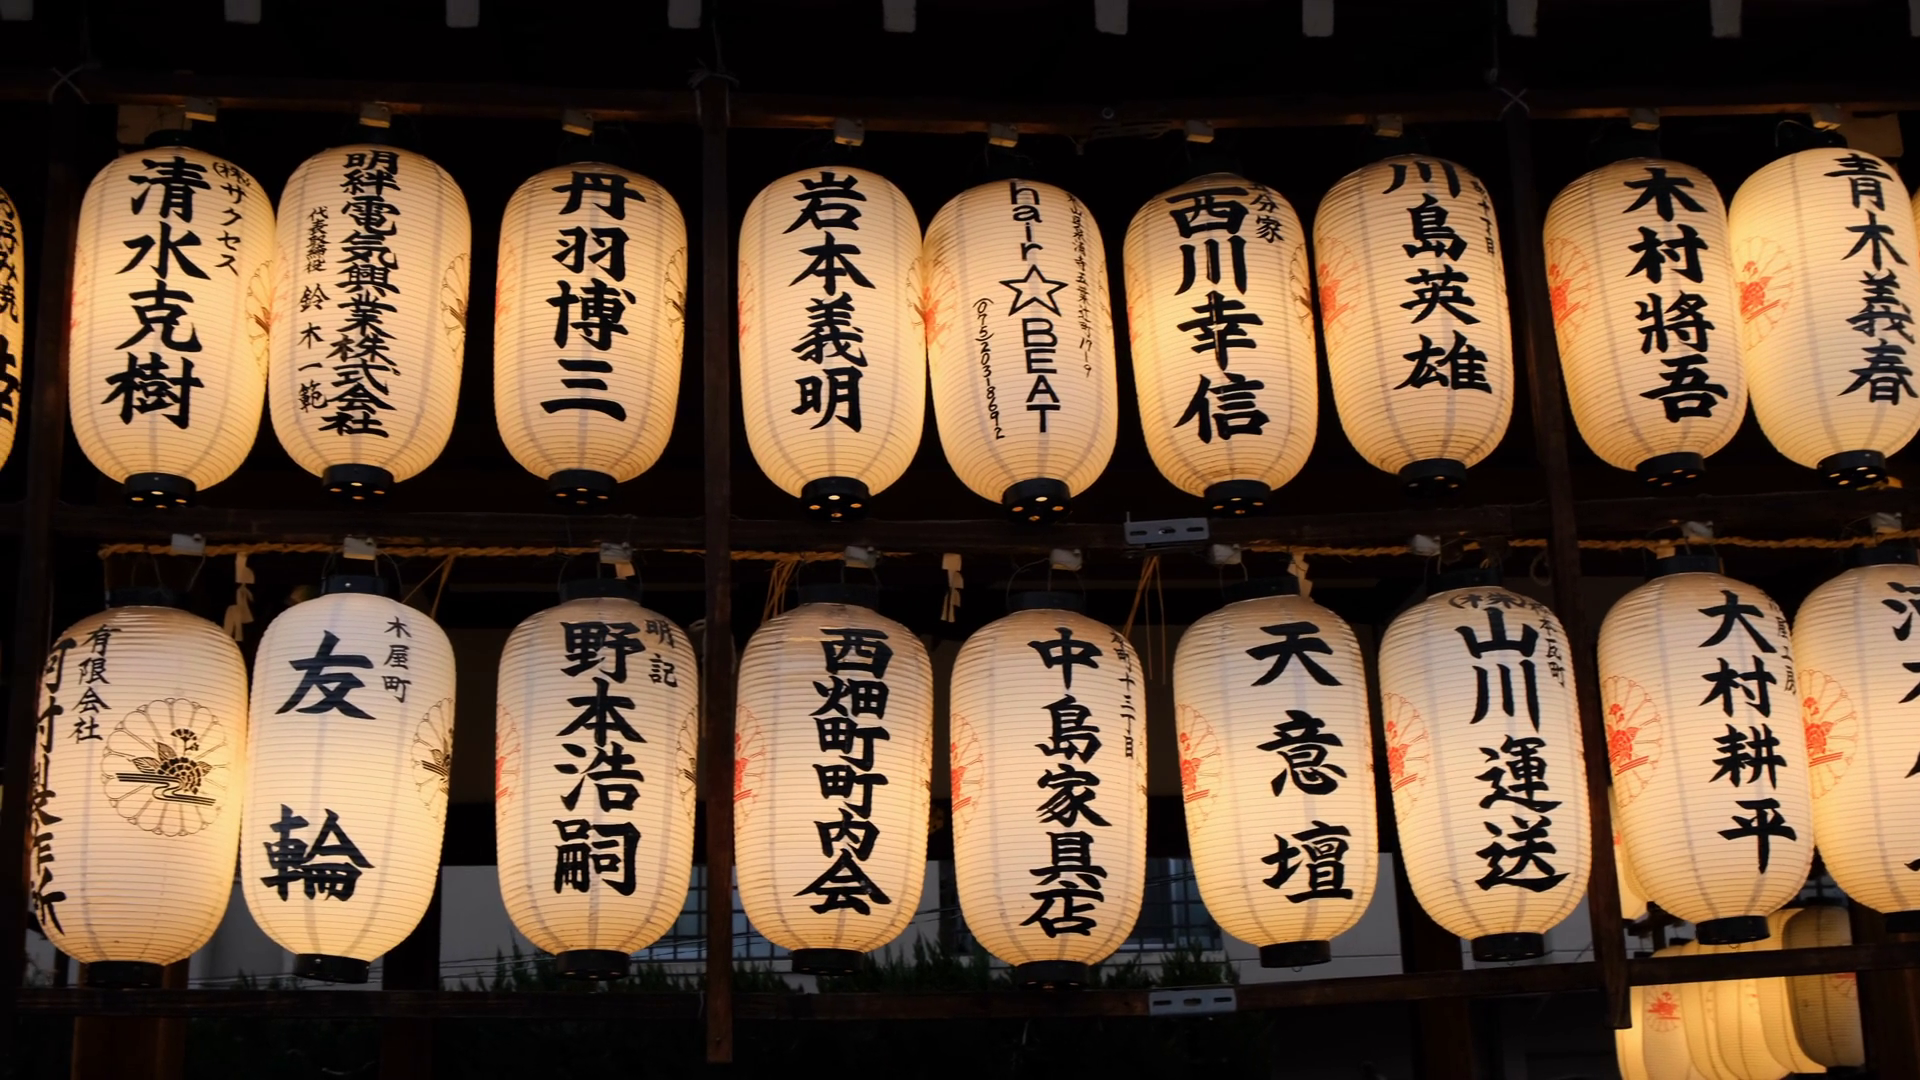 清水克樹
(株)サクセス
明絆電気興業株式会社
代表取締役 鈴木一範
丹羽博三
岩本義明
hair☆BEAT
(075)203-8692
西川幸信
分家
川島英雄
木村將吾
青木義春
有限会社
友輪
木屋町
野本浩嗣
明記
西畑町町内会
中島家具店
十三丁目
天意壇
山川運送
(株)
大村耕平